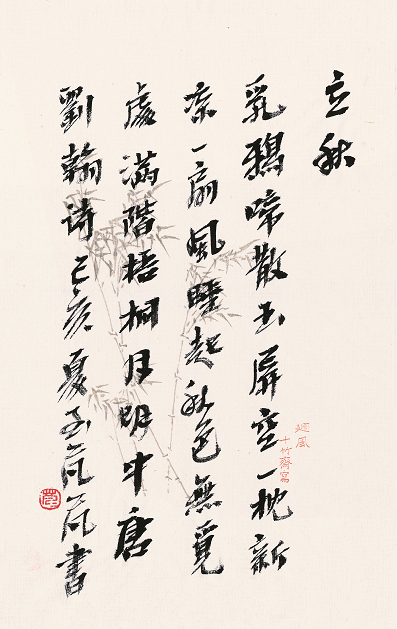 立秋
乳鴉啼散玉屏空一枕新
凉一扇風睡起秋色無覓
處滿階梧桐月明中唐
劉翰詩己亥夏至書
風
十竹齋寫